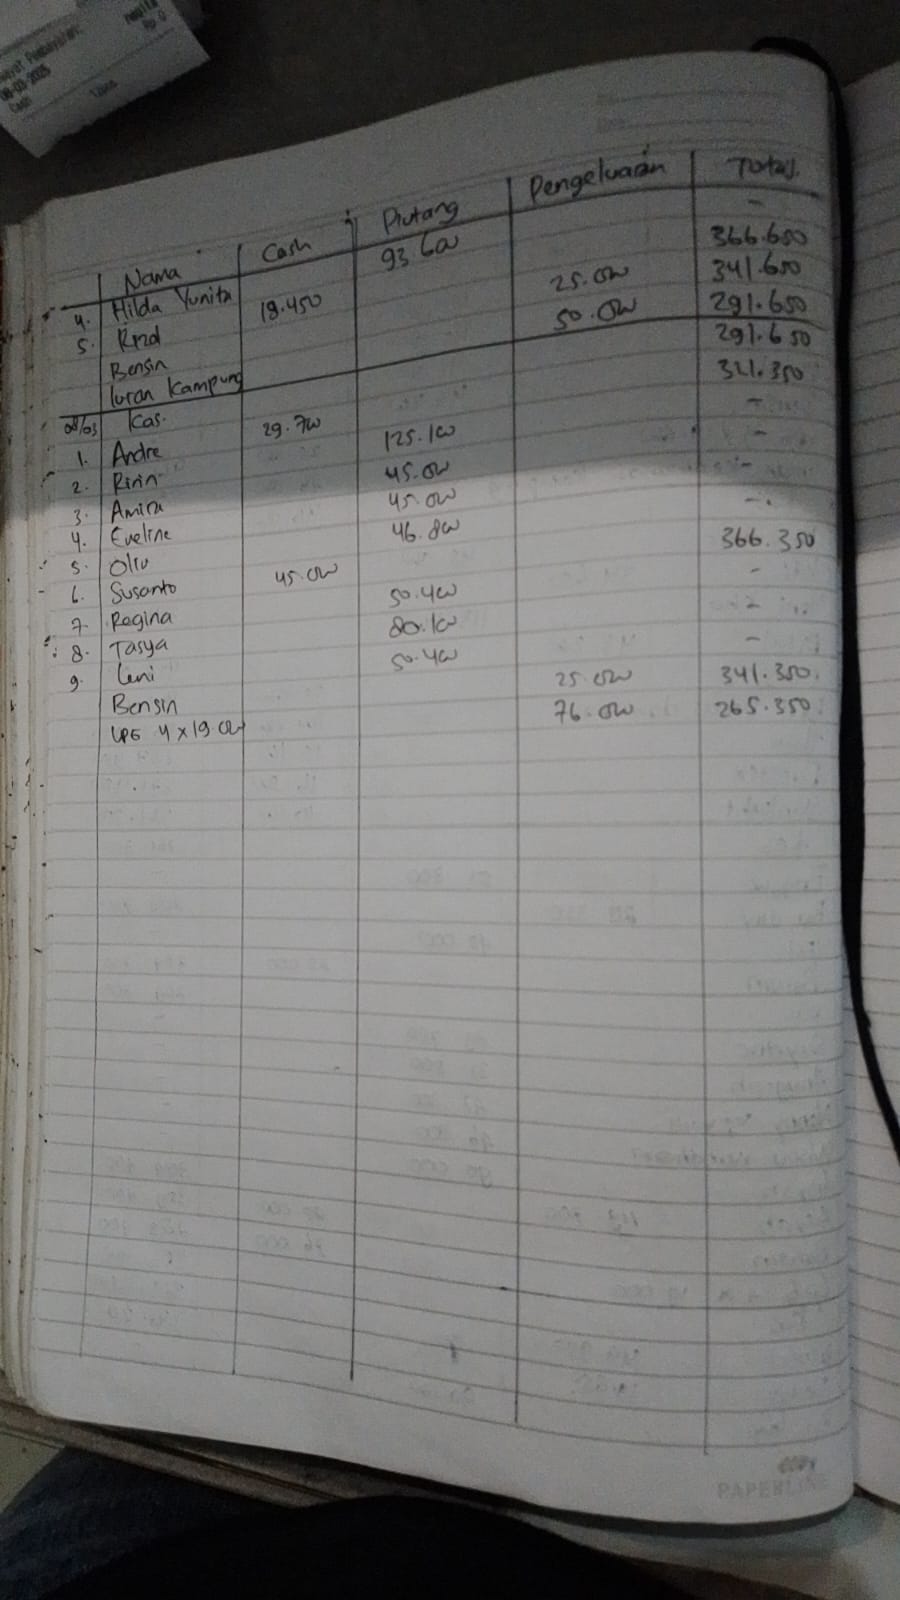 08-03-2025
Cash
Rp 0
Nama Cash Piutang Pengeluaran Total
4. Hilda Yunita 93.600 -
5. Rizal 18.450 366.650
Bensin 25.000 341.650
Iuran Kampung 50.000 291.650
08/03 Kas. 291.650
1. Andre 29.700 321.350
2. Ririn 125.100 -
3. Amira 45.000 -
4. Eveline 45.000 -
5. Oliv 46.800 -
6. Susanto 45.000 366.350
7. Regina 50.400 -
8. Tasya 80.100 -
9. Leni 50.400 -
Bensin 25.000 341.350.
LPG 4 x 19.000 76.000 265.350.
PAPERLINE